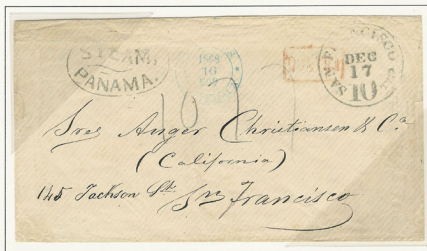 STEAM,
PANAMA.
1868
10
SAN FRANCISCO
DEC
17
10
10
Sres Anger Christiansen & Ca
(California)
145 Jackson St. Sn Francisco